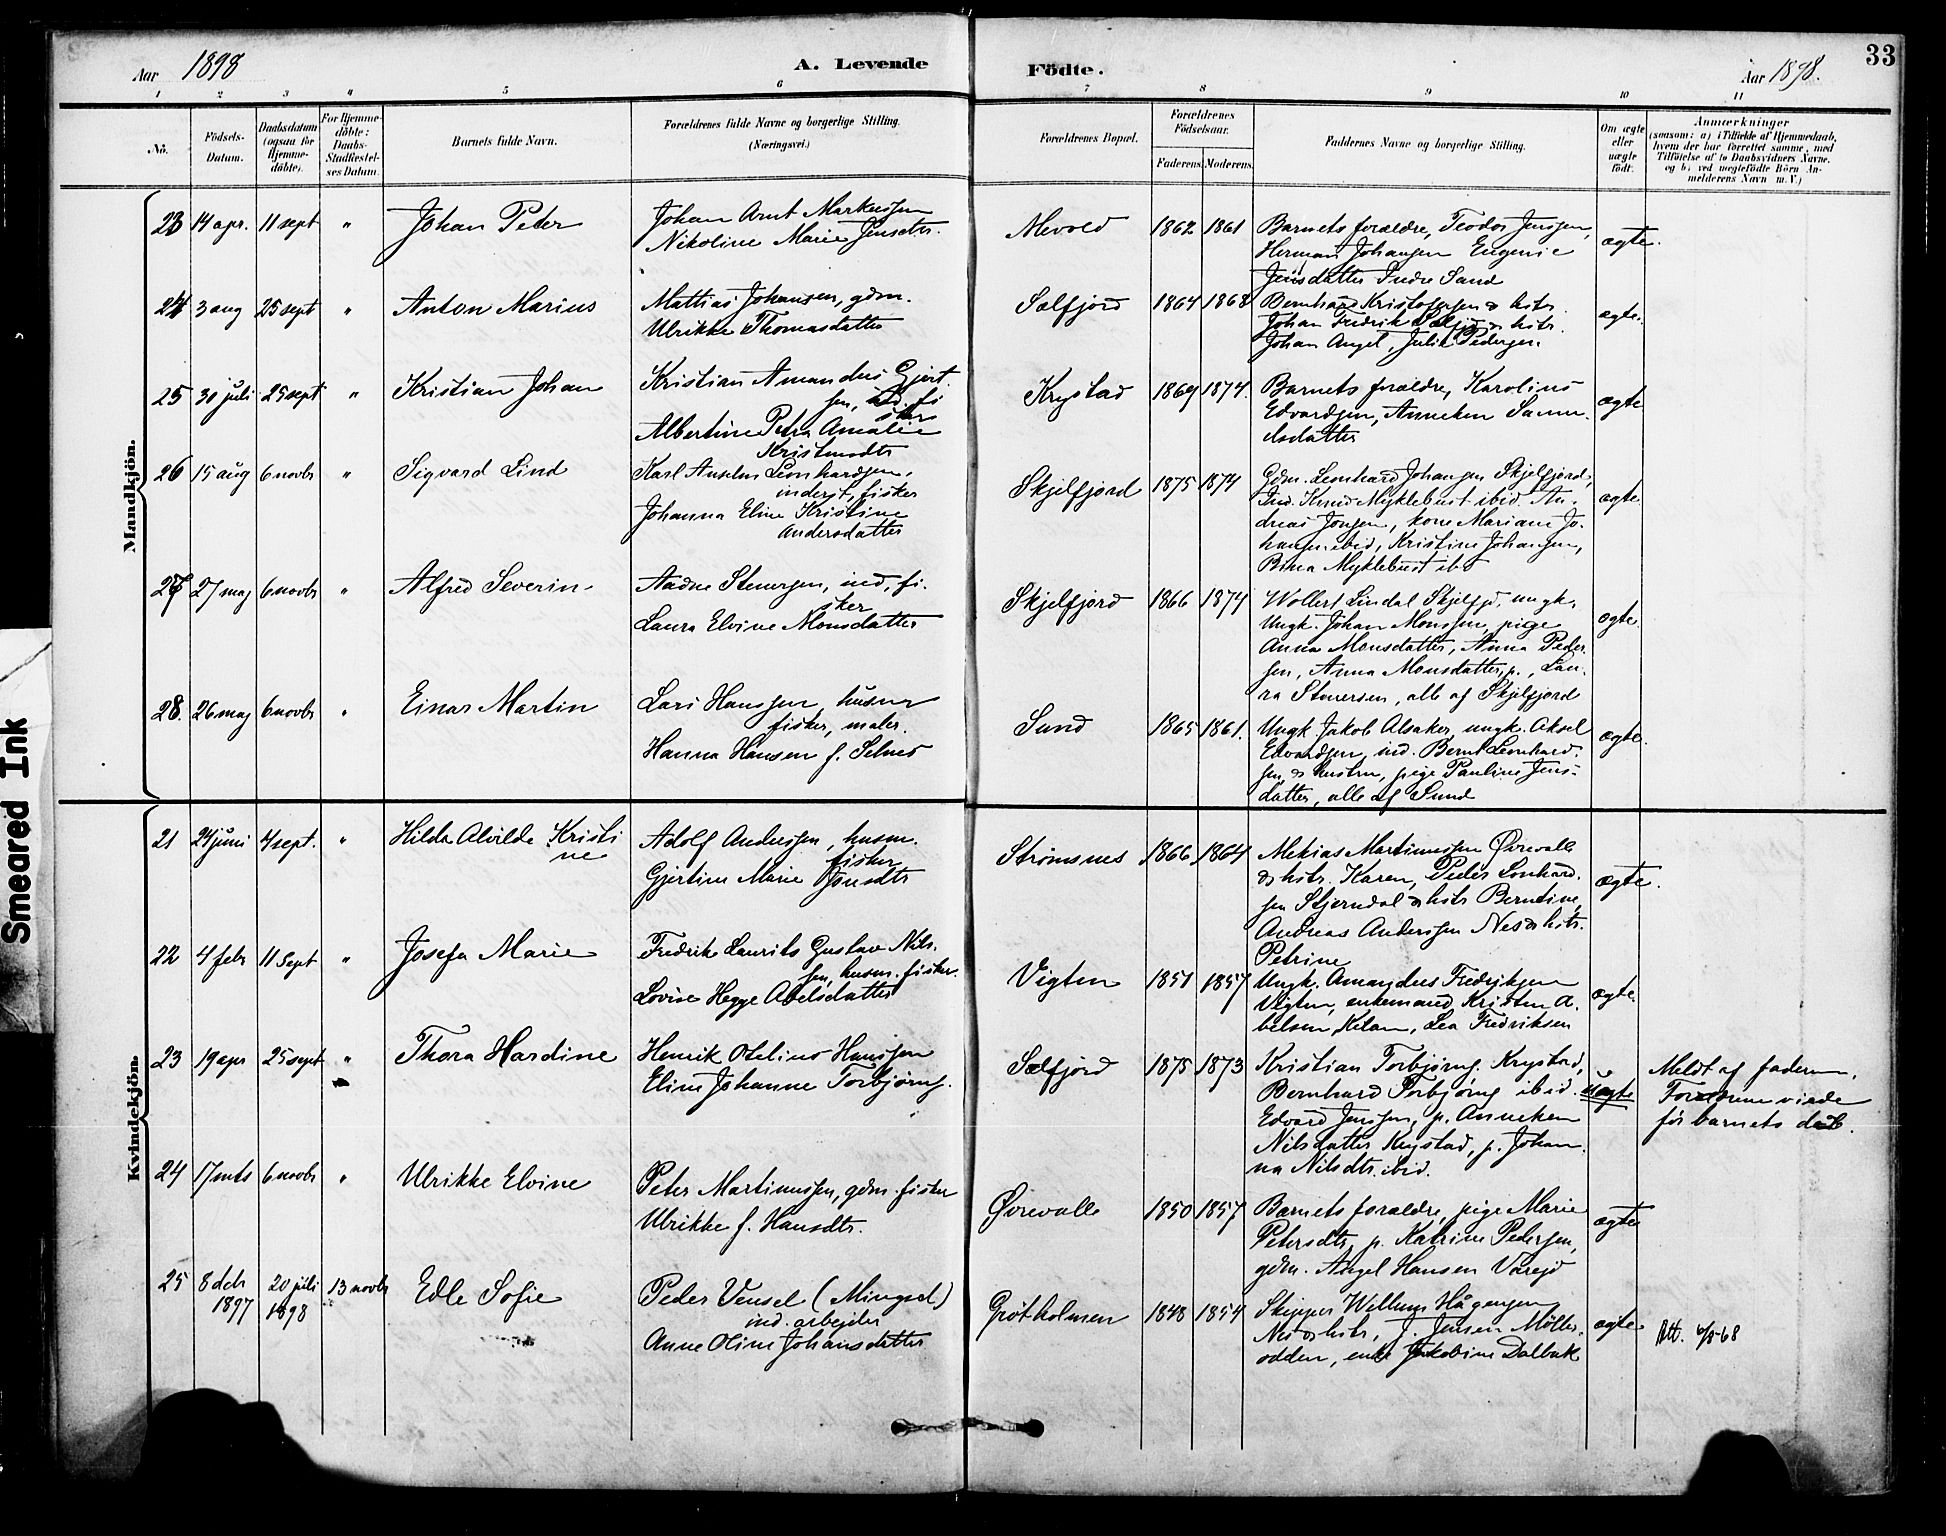 Aar 1898
A. Levende
Födte.
Aar 1898.
33
1 2 3 4 5 6 7 8 9 10 11
No.
Födsels-Datum.
Daabsdatum (ogsaa for Hjemme-döbte).
For Hjemme-döbte: Daabs-Stadfæstel-ses Datum.
Barnets fulde Navn.
Forældrenes fulde Navne og borgerlige Stilling.
(Næringsvei.)
Forældrenes Bopæl.
Forældrenes Födselsaar.
Faderens. Moderens.
Faddernes Navne og borgerlige Stilling.
Om ægte eller uægte födt.
Anmærkninger
(saasom: a) i Tilfælde af Hjemmedaab,
hvem der har forrettet samme, med
Tilföielse af to Daabsvidners Navne,
og b) ved uægtefödte Börn An-
melderens Navn m. V.)
Mandkjön.
23 14 apr. 11 sept " Johan Peter
Johan Arnt Markussen
Nikoline Marie Jensdtr.
Mevold 1862 1861
Barnets forældre, Teodor Jensen,
Herman Johansen Eugenie
Jensdatter Indre Sand
ægte.
24 3 aug 25 sept " Anton Marius
Mattias Johansen, gdm.
Ulrikke Thomasdatter
Sælfjord 1864 1868
Bernhard Kristofersen & hstr.
Johan Fredrik & hstr.
Johan Angel, Julie Pedersen.
ægte.
25 30 juli 25 sept " Kristian Johan
Kristian Amandus Gjert
sen, ind. fi
sker
Albertine Petra Amalie
Kristensdtr
Krystad 1869 1874.
Barnets forældre, Karolius
Edvardsen, Anneken Samu
elsdatter
ægte
26 15 aug 6 novbr " Sigvard Lind
Karl Anselm Leonhardsen,
inderst, fisker
Johanna Eline Kristine
Andersdatter
Skjelfjord 1875 1874
Gdm. Leonhard Johansen Skjelfjord,
Ind. Knud Myklebust ibid. An-
dreas Jonsen, kone Mariane Jo-
hansen ibid, Kristine Johansen,
Bina Myklebust ibd
ægte
27 27 maj 6 novbr " Alfred Severin
Aadne Stenersen, ind, fi-
sker
Laura Elvine Monsdatter
Skjelfjord 1866 1874
Wollert Lindal Skjelfjd, ungk,
Ungk. Johan Monssen, pige
Anna Monsdatter, Anna Peder
sen, Anna Monsdatter, p., Lau-
ra Stenersen, alle af Skjelfjord
ægte.
28. 26 maj 6 novbr " Einar Martin
Lars Hanssen, husm
fisker, maler.
Hanna Hansen f. Selnes
Sund 1865 1861.
Ungk. Jakob Alsaker, ungk. Aksel
Edvardsen, ind. Bernt Leonhard-
sen & hustru, pige Pauline Jens-
datter, alle af Sund
ægte.
Kvindekjön.
21 24 juni 4 sept. " Hilda Alvilde Kristi
ne
Adolf Andreassen, husm.
fisker
Gjertine Marie Jonsdtr
Strømsnes 1866 1864
Mekias Martinussen Øvrevalle
& hstr. Karen, Peder Lonhard-
sen Stjerndal & hstr Berntine,
Andreas Andersen Nes & hstr.
Petrine
ægte.
22 4 febr 11 Sept " Josefa Marie
Fredrik Laurits Gustav Nils-
sen, husm. fisker.
Lovise Hegge Abelsdatter
Vigten 1851 1857
Ungk. Amandus Fredriksen
Vigten, enkemand Kristen A-
belsen Kilan, Lea Fredriksen
ægte.
23 19 apr 25 sept " Thora Hardine
Henrik Otelius Hanssen
Eline Johanne Torbjørns.
Sælfjord 1875 1873
Kristian Torbjørns. Krystad,
Bernhard Torbjørns ibid.
Edvard Jenssen, p. Anneken
Nilsdatter Krystad, p. Johan
na Nilsdtr. ibid.
Uægte
Meldt af faderen.
Forældrene viede
før barnets daab.
24 17 mts 6 novbr " Ulrikke Elvine
Peter Martinussen, gdm. fisker
Ulrikke f. Hansdtr.
Øvrevalle 1850 1857
Barnets forældre, pige Marie
Petersdtr, p. Katrine Pedersen,
gdm. Angel Hansen Varejd
ægte
25 8 debr 1897 20 juli 1898 13 novbr Edle Sofie
Peder Vensel (Mingsel)
ind. arbejder
Anne Oline Johansdatter
Grøtholmen 1848 1854
Skipper Wellum Hågensen
Nes & hstr, J. Jensen Møller-
odden, enke Jakobine Dalbak
ægte
Att. 6/8-68
Smeared Ink